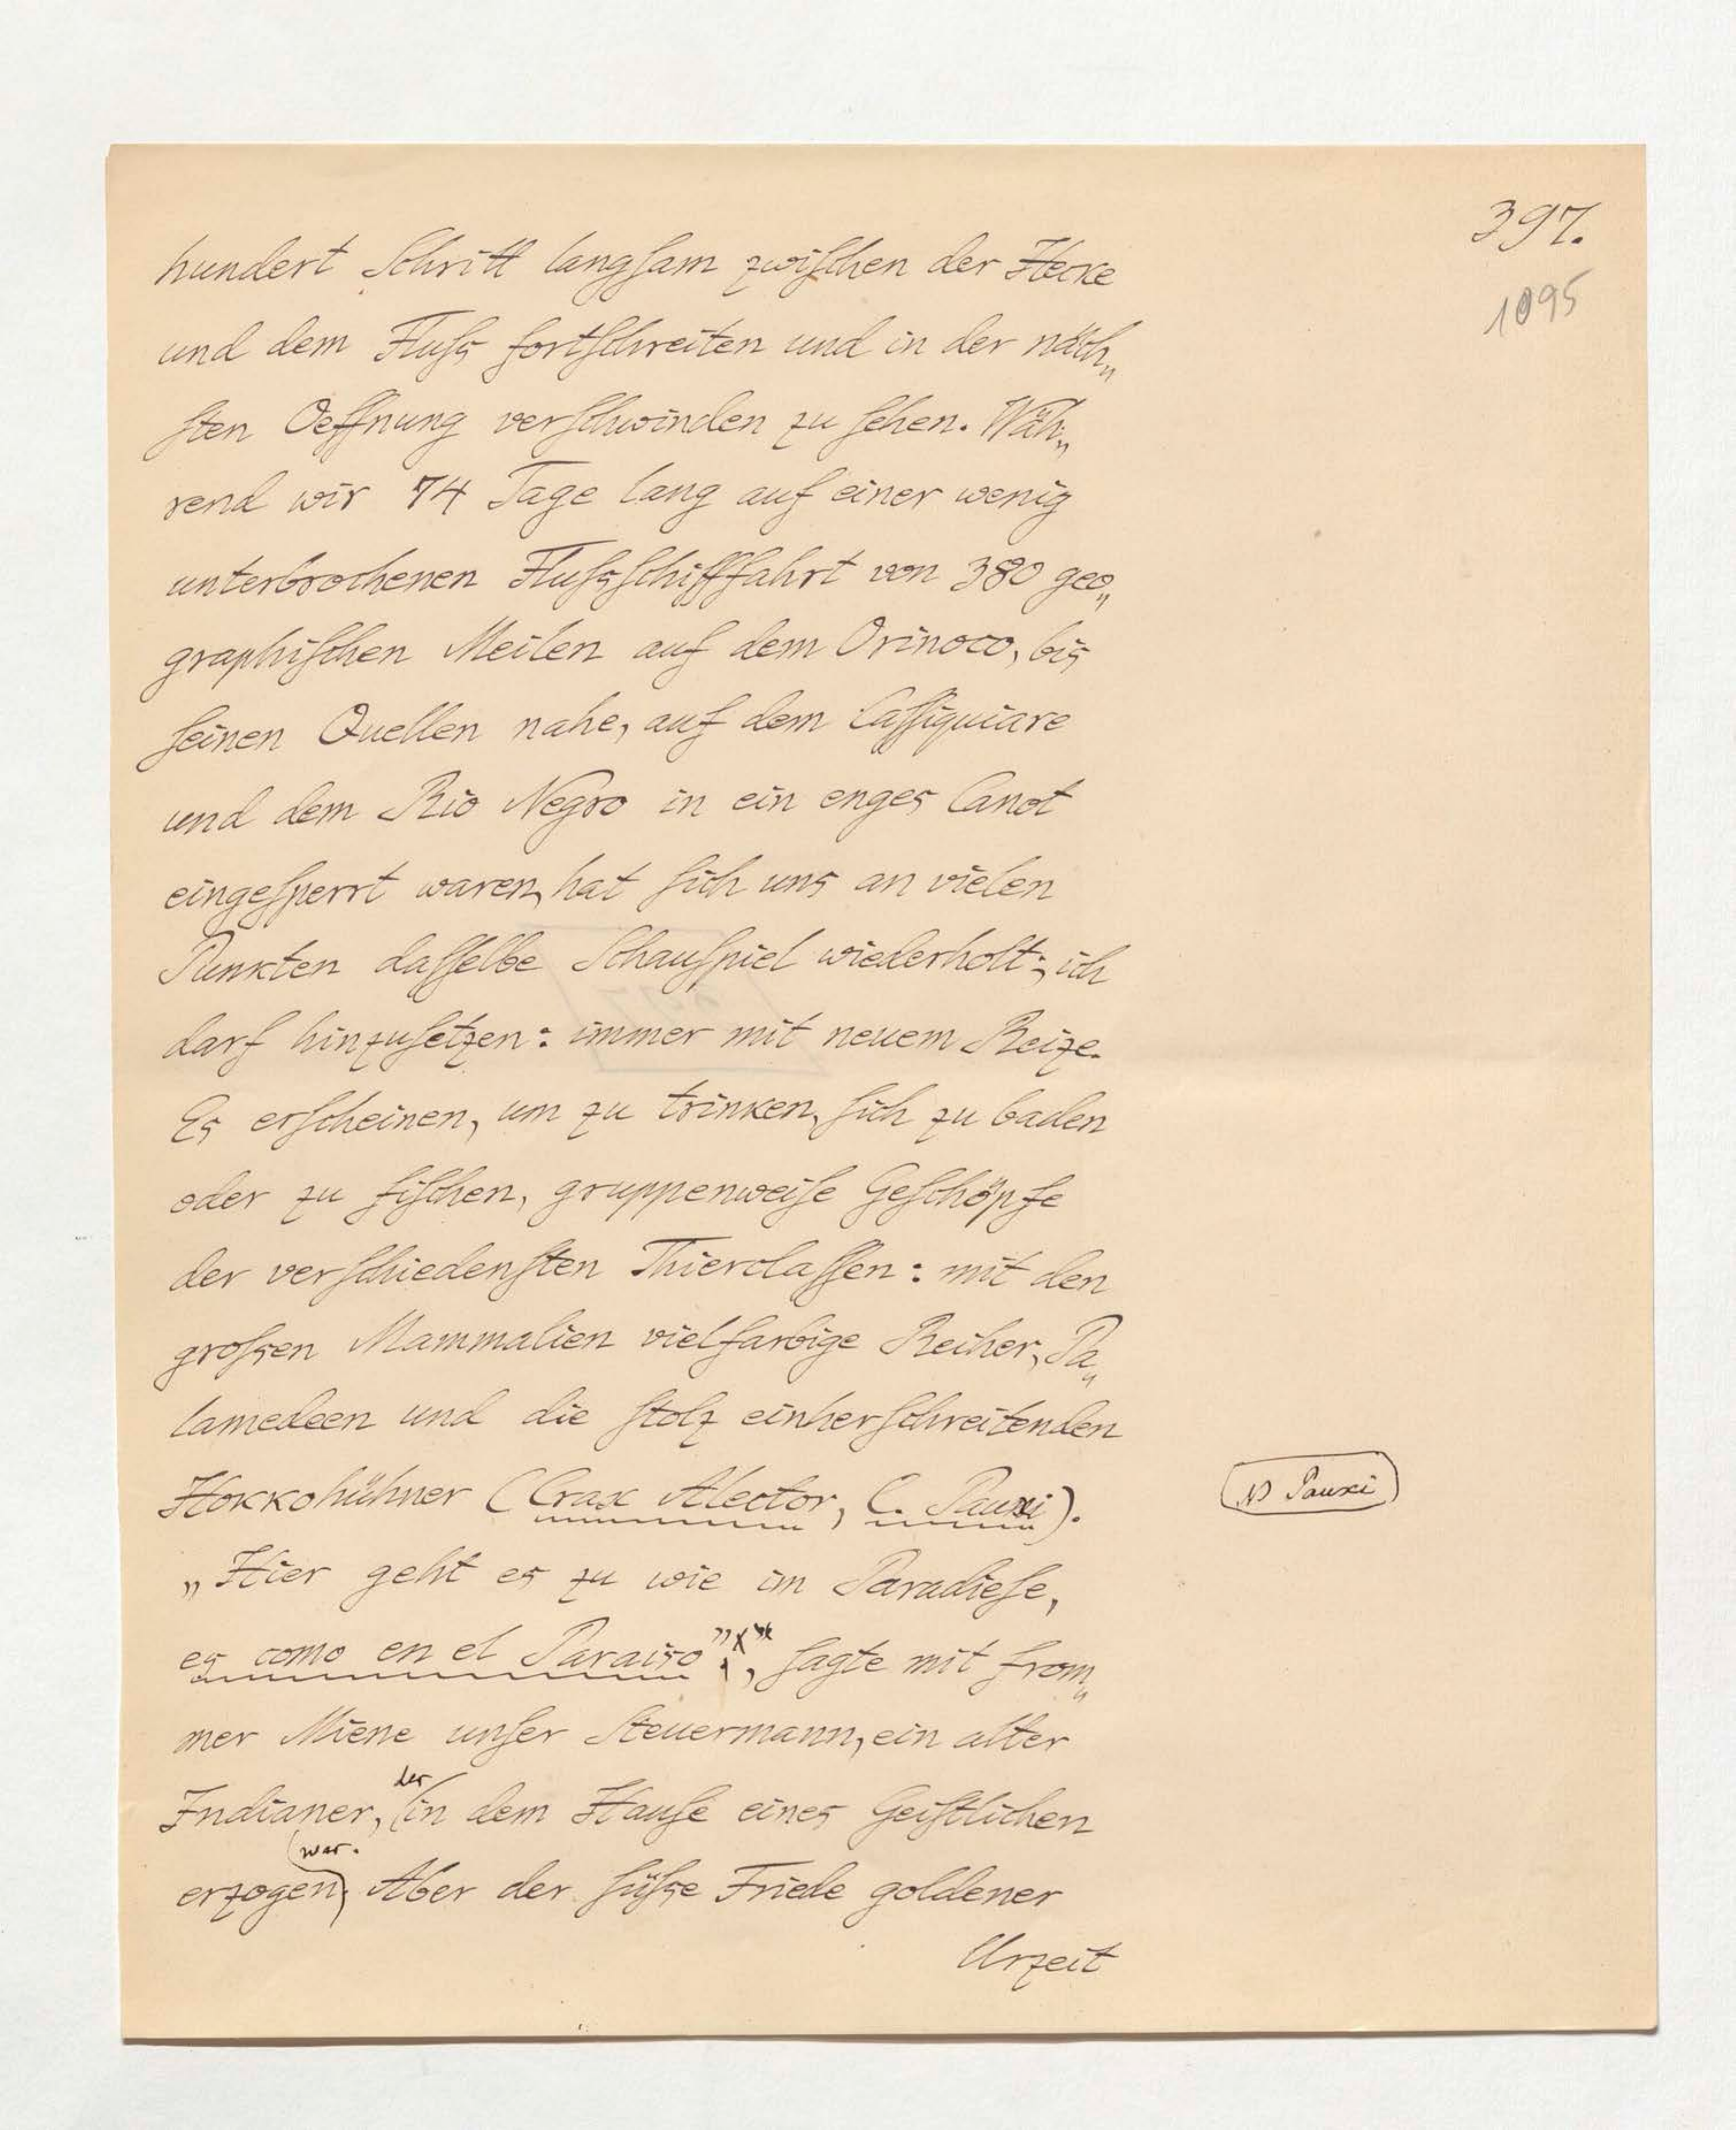 397.
1095
hundert Schritt langsam zwischen der Hecke
und dem Fluß fortschreiten und in der näch„
sten Oeffnung verschwinden zu sehen. Wäh„
rend wir 74 Tage lang auf einer wenig
unterbrochenen Flußschifffahrt von 380 geo„
graphischen Meilen auf dem Orinoco, bis
seinen Quellen nahe, auf dem Cassiquiare
und dem Rio Negro in ein enges Canot
eingesperrt waren, hat sich uns an vielen
Punkten dasselbe Schauspiel wiederholt; ich
darf hinzusetzen: immer mit neuem Reize.
Es erscheinen, um zu trinken, sich zu baden
oder zu fischen, gruppenweise Geschöpfe
der verschiedensten Thierclassen: mit den
großen Mammalien vielfarbige Reiher, Pa„
lamedeen und die stolz einherschreitenden
Hokkohühner (Crax Alector, C. Pauxi).
N Pauxi
„Hier geht es zu wie im Paradiese,
es como en el Paraiso”*, sagte mit from„
mer Miene unser Steuermann, ein alter
Indianer, der in dem Hause eines Geistlichen
erzogen war. Aber der süße Friede goldener
Urzeit